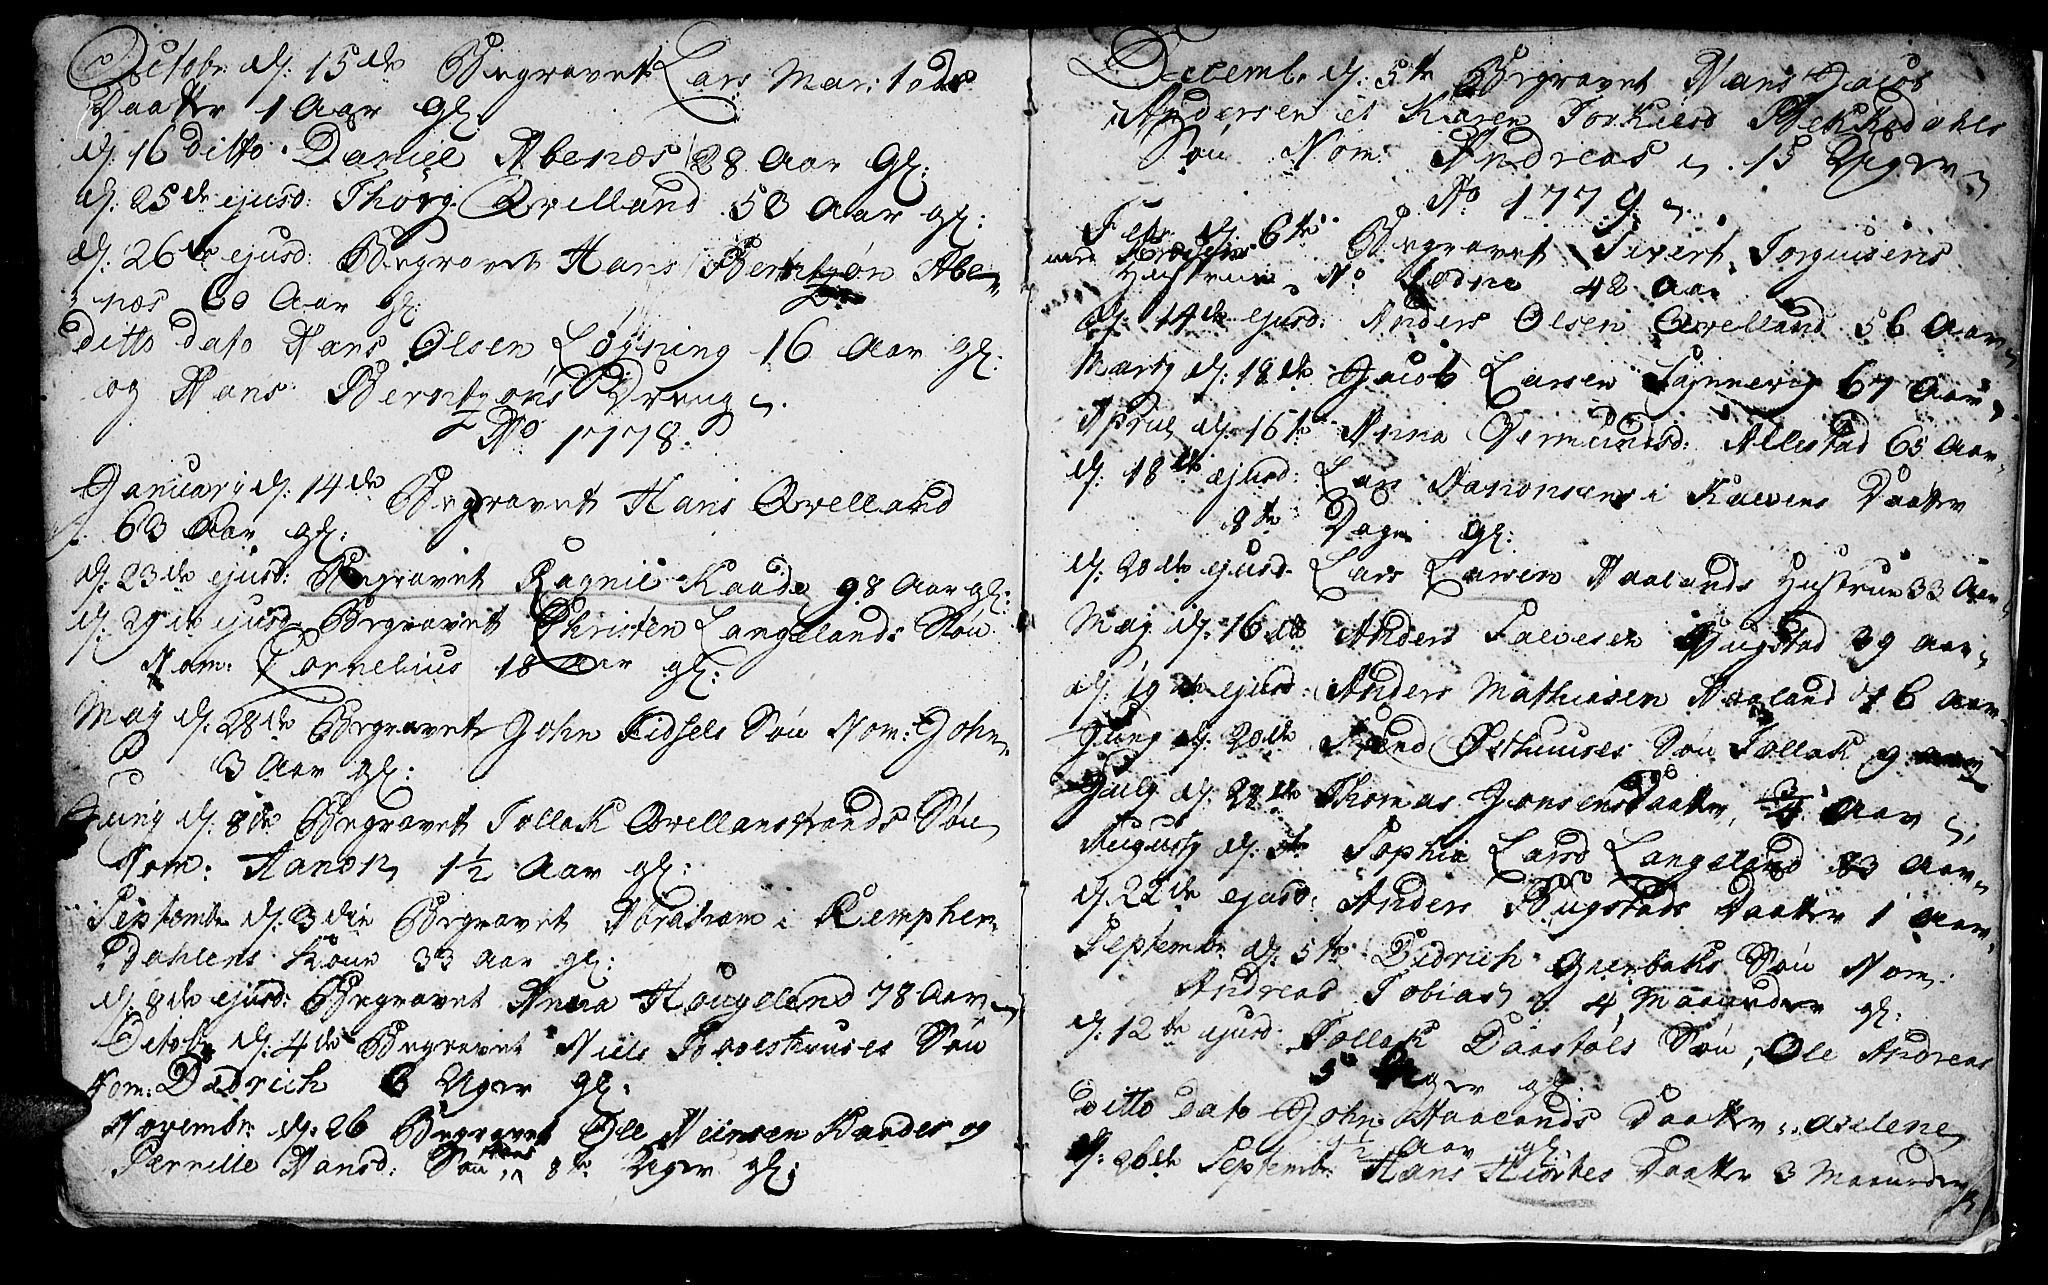 Octobr: d: 15de Begravet Lars Mar:
Daatter 1 Aar gl:
d: 16 ditto Daniel Abenæs 28 Aar Gl:
d: 25de ejusd: Thorg: Qvelland 53 Aar gl:
d: 26de ejusd: Begravet Hans Berntzøn Abe-
næs 60 Aar gl:
ditto dato Hans Olsen Løgning 16 Aar gl:
og Hans Berntzøns Dreng
Ao 1778.
Januarij d: 14de Begravet Hans Qvelland
63 Aar gl:
d: 23de ejusd: Begravet Ragnil Kaade 98 Aar gl:
d: 29de ejusd: Begravet Christen Langelands Søn
Nom: Cornelius 18 Aar gl:
Maij d: 28de Begravet John Eidsels Søn Nom: John
3 Aar gl:
Junij d: 8de Begravet Tollak Qvellanstrands Søn
Nom: Hanon 1½ Aar gl:
Septembr d: 3die Begravet Abraham i Remphen-
dahlens Kone 33 Aar gl:
d: 8de ejusd: Begravet Anna Hougeland 78 Aar
Octobr: d: 4de Begravet Niels Søn
Nom: Didrich 6 Uger gl:
Novembr: d: 26 Begravet Ole Nilsen Kaades og
Pernille Hansd: Søn Hans 8te Uger gl:
Decemb: d: 5te Begravet Hans Jacob
Andersen et Karen Torkield Bekkedahls
Søn Nom: Andreas 15 Uger
Ao 1779
Febr d: 6te Begravet Sivert Torgusens
Hustrue No: 42 Aar
d: 14de ejusd: Anders Olsen Qvelland 56 Aar
Martij d: 18de Jacob Larsen 67 Aar
April d: 16te Anna Allestad 65 Aar
d: 18de ejusd: Lars i Daatter
8te Dage gl:
d: 20de ejusd: Lars Larsen Haalands Hustrue 33 Aar
Maij d: 16de Anders Salvesen Bugstad 39 Aar
d: 19de ejusd: Anders Mathiasen Haaland 76 Aar
Junij d: 20de Svend Østhuuses Søn Tollak 9
Julij d: 28de Thomas Jonsens Daatter, ¾ Aar
Augustij d: Sophia Larsd Langeland 83 Aar
d: 22de ejusd: Anders Bugstads Daatter 1 Aar
Septembr d: 5te Didrich Søn Nom:
Andreas Tobias 4 Maaneder gl:
d: 12te ejusd: Tollak Daastøls Søn, Ole Andreas
5 Uger gl:
Ditto Dato John Haalands Daatter: Axelene
½ Aar gl:
d: 26de Septembr: Hans Daatter 3 Maaneder